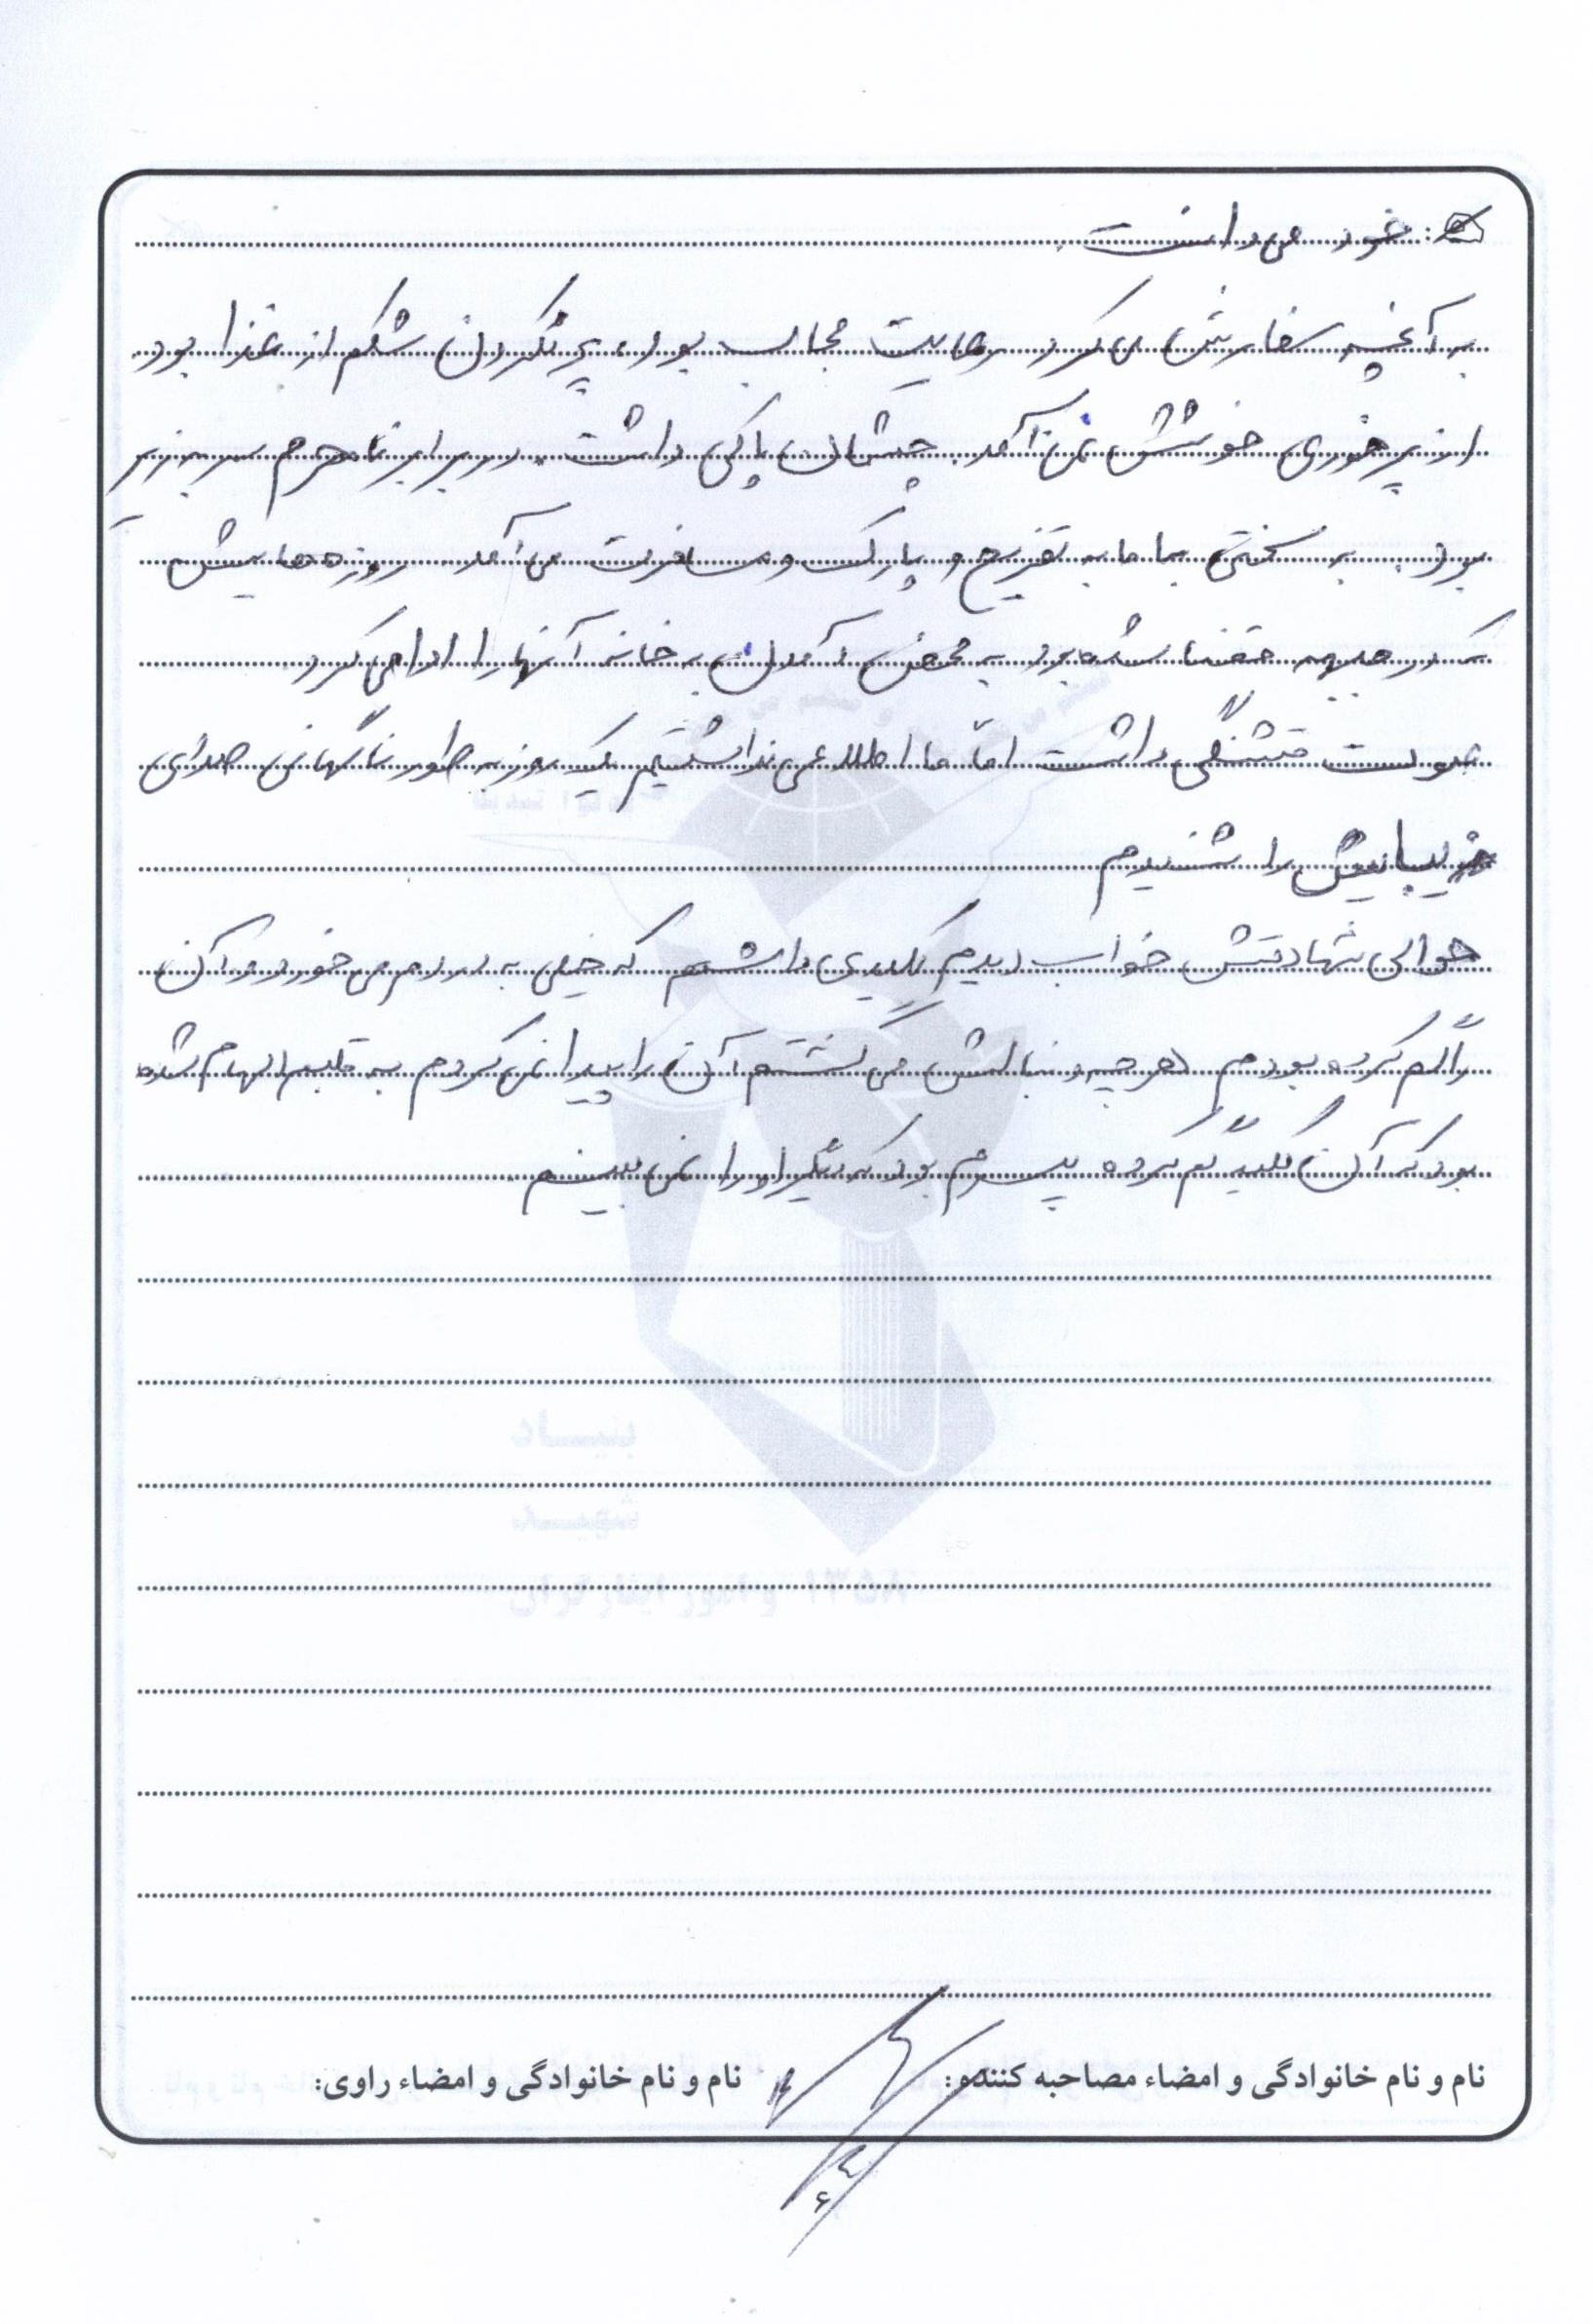 خود می‌دانست
به آنچه سفارش می‌کرد رعایت حجاب بود، پر نکردن شکم از غذا بود
از پرخوری خوشش نمی‌آمد. چشمان پاکی داشت. در برابر نامحرم سر به زیر
بود. به سختی با ما به تفریح و پارک و مسافرت می‌آمد. روزه‌هایش
که در جبهه قضا شده بود به محض آمدن به خانه آنها را ادا می‌کرد
صوت قشنگی داشت اما ما اطلاعی نداشتیم یک روز به طور ناگهانی صدای
زیبایش را شنیدم
حوالی شهادتش خواب دیدم کلیدی داشتم که خیلی به دردم می‌خورد و آن
را گم کرده بودم هر چه دنبالش می‌گشتم آن را پیدا نمی‌کردم به قلبم الهام شده
بود که آن کلید گم کرده پسرم بود که دیگر او را نمی‌بینم
نام و نام خانوادگی و امضاء مصاحبه کننده: نام و نام خانوادگی و امضاء راوی:
۶